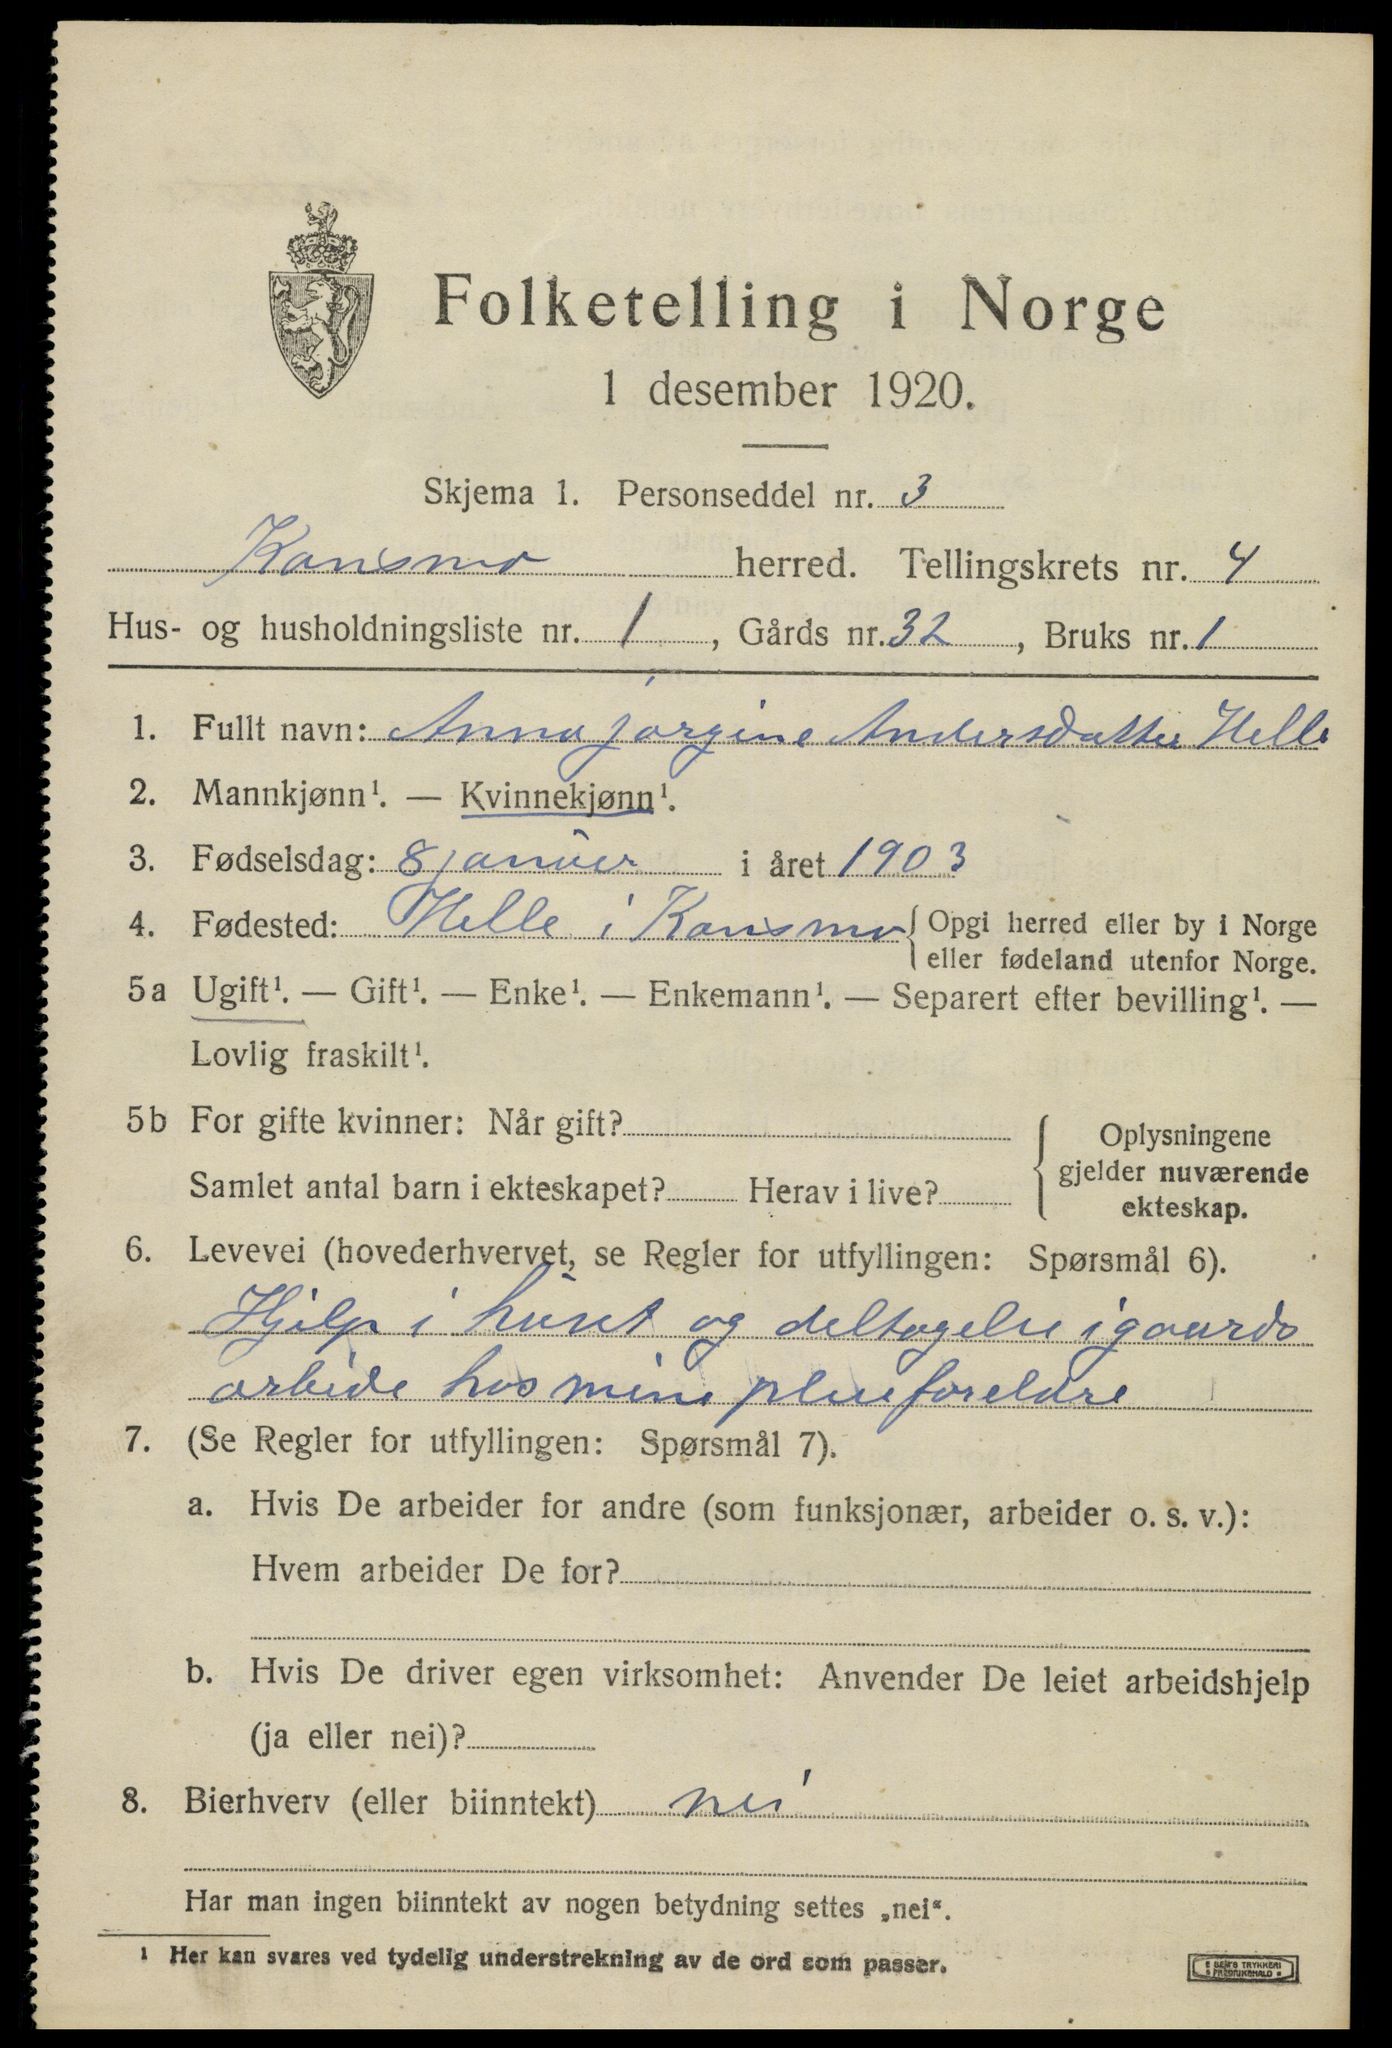 Folketelling i Norge
1 desember 1920.
Skjema 1. Personseddel nr. 3
Konsmo herred. Tellingskrets nr. 4
Hus- og husholdningsliste nr. 1, Gårds nr. 32, Bruks nr. 1
1. Fullt navn: Anna jørgine Andersdatter Helle
2. Mannkjønn¹. — Kvinnekjønn¹.
3. Fødselsdag: 8 januer i året 1903
4. Fødested: Helle i Konsmo { Opgi herred eller by i Norge
eller fødeland utenfor Norge.
5a Ugift¹. — Gift¹. — Enke¹. — Enkemann¹. — Separert efter bevilling¹. —
Lovlig fraskilt¹.
5b For gifte kvinner: Når gift?
Samlet antal barn i ekteskapet? Herav i live?
Oplysningene
gjelder nuværende
ekteskap.
6. Levevei (hovederhvervet, se Regler for utfyllingen: Spørsmål 6).
Hjelp i huset og deltagelse i gaards
arbeide hos mine pleieforeldre
7. (Se Regler for utfyllingen: Spørsmål 7).
a. Hvis De arbeider for andre (som funksjonær, arbeider o. s. v.):
Hvem arbeider De for?
b. Hvis De driver egen virksomhet: Anvender De leiet arbeidshjelp
(ja eller nei)?
8. Bierhverv (eller biinntekt) nei
Har man ingen biinntekt av nogen betydning settes „nei“.
¹ Her kan svares ved tydelig understrekning av de ord som passer.
E SEM'S TRYKKERI
FREDRIKSHALD